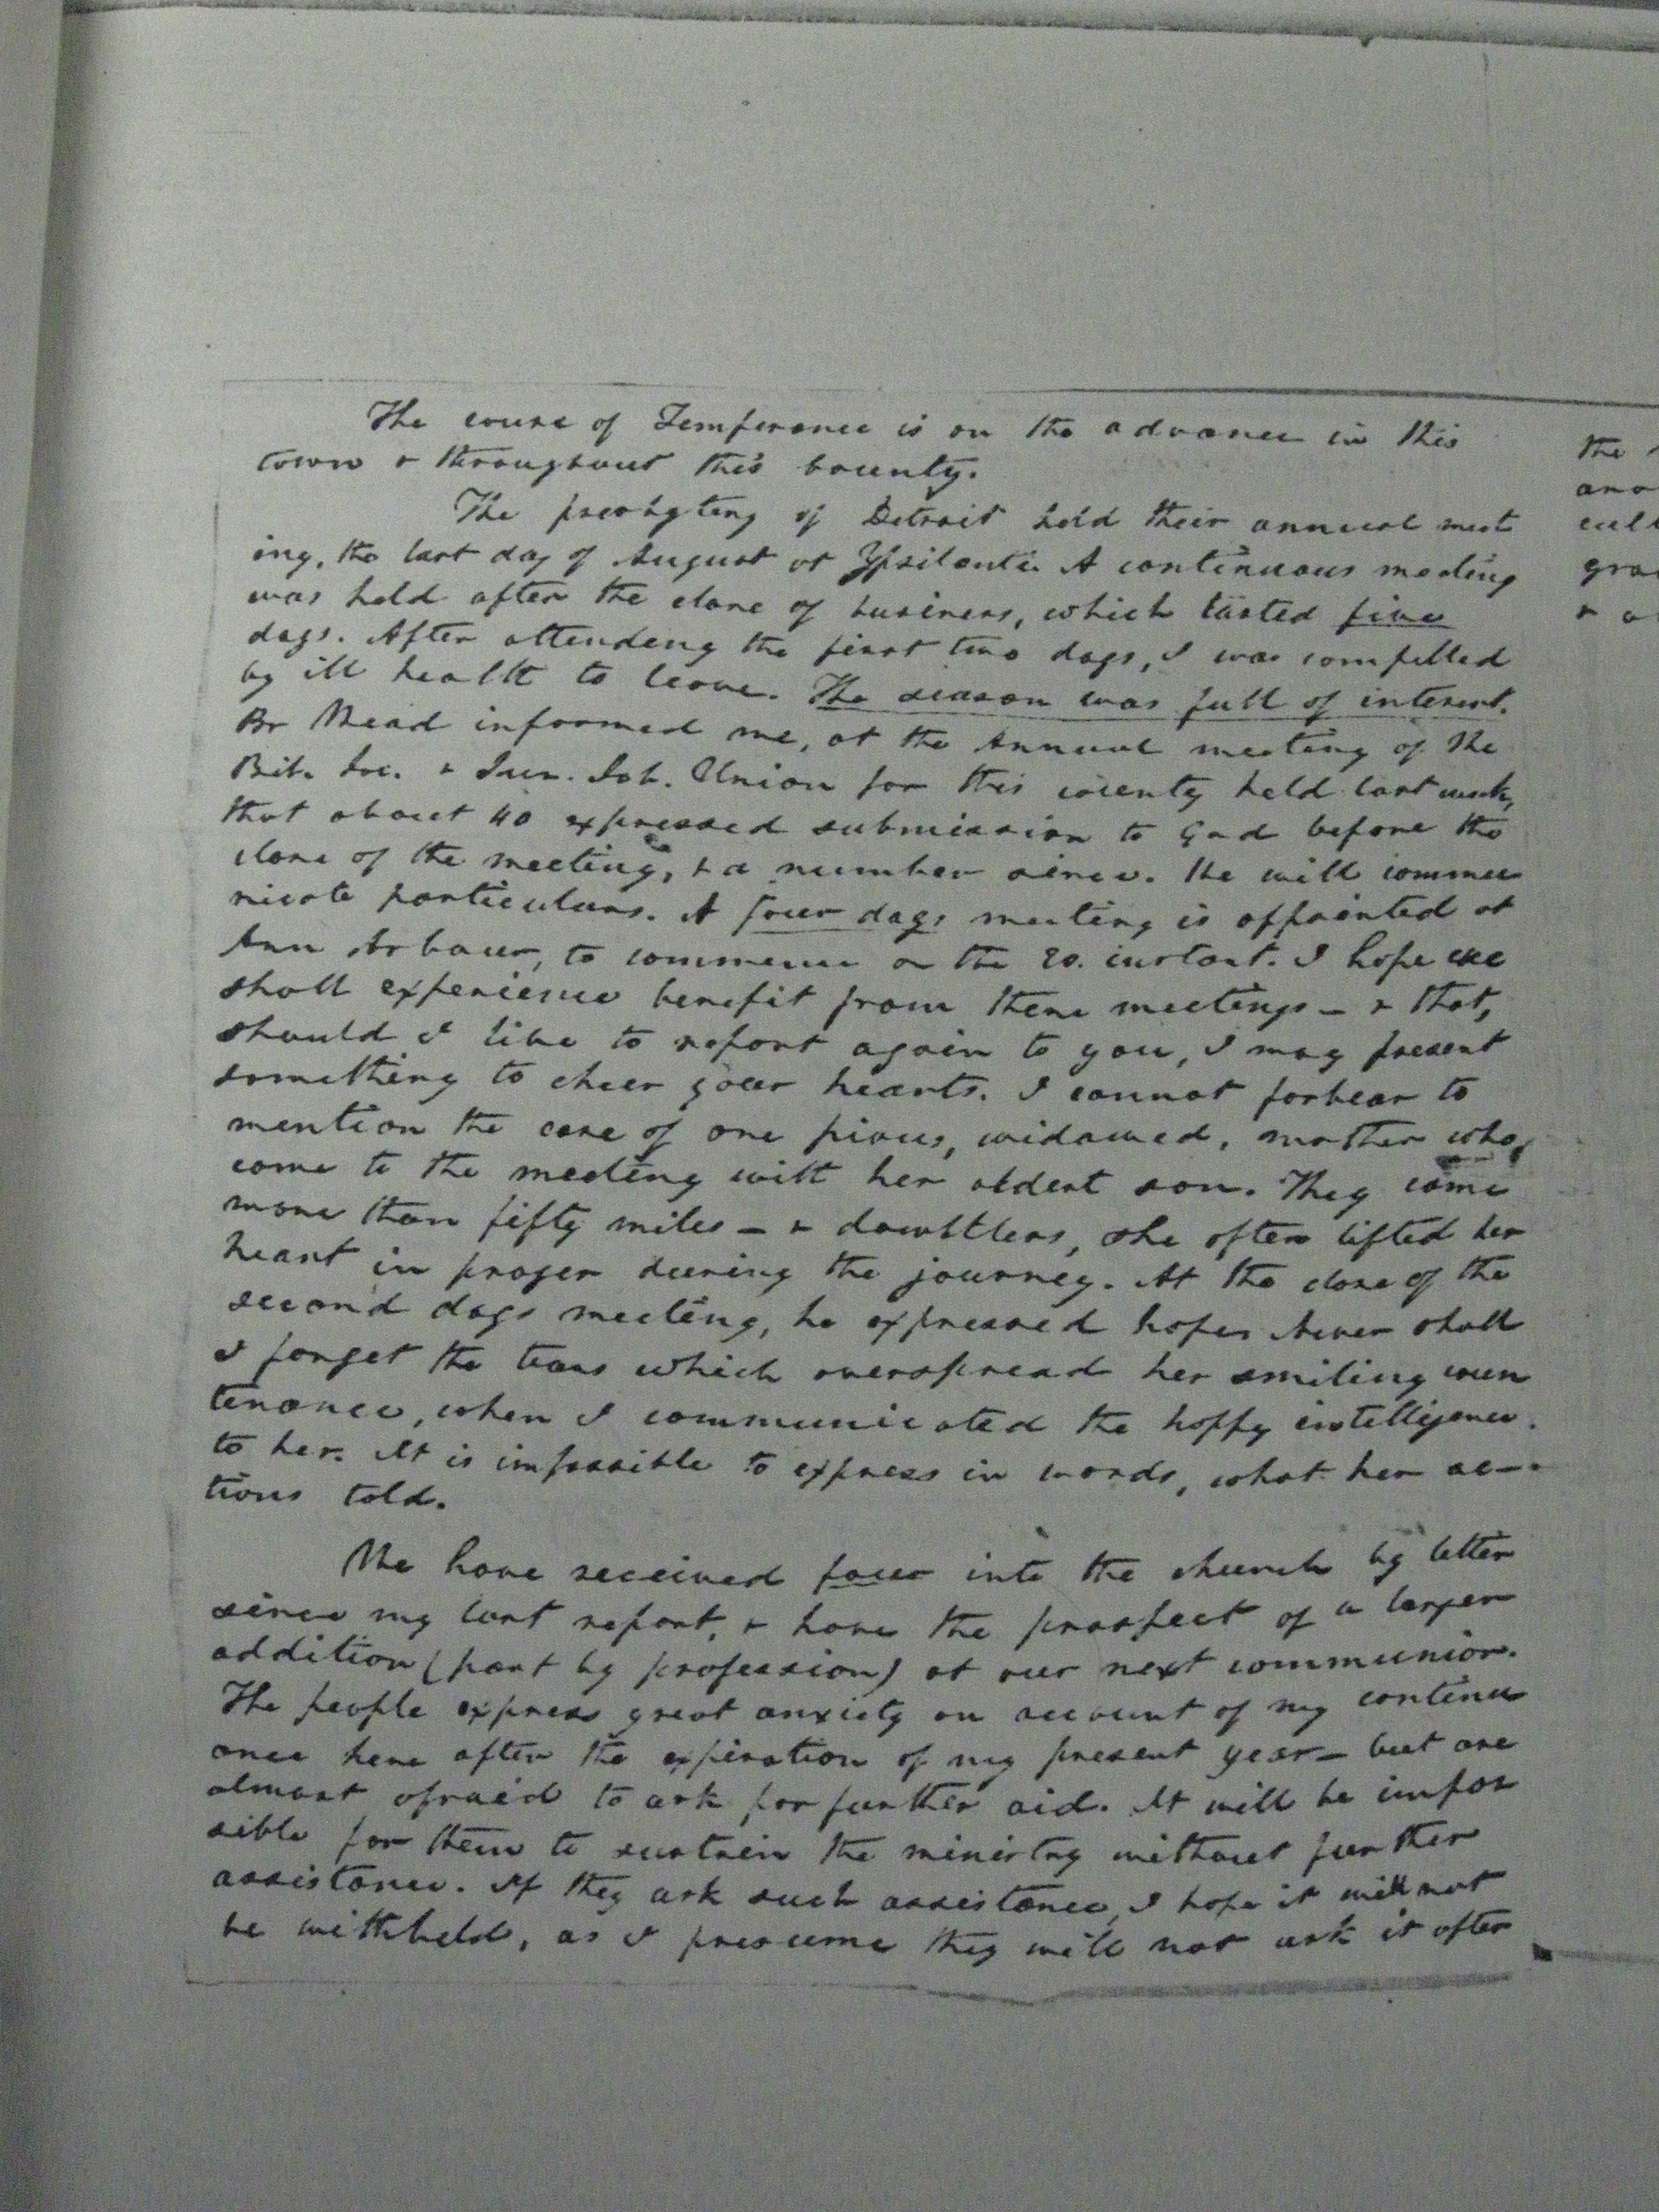 The cause of Temperance is on the advance in this
town & throughout this County.
The presbytery of Detroit held their annual meet
ing, the last day of August at Ypsilanti. A continuous meeting
was held after the close of business, which lasted five
days. After attending the first two days, I was compelled
by ill health to leave. The season was full of interest.
Br Read informed me, at the Annual meeting of the
Bib. Soc. & Sun. Sch. Union for this county held last week,
that about 40 expressed submission to God before the
close of the meeting, & a number since. He will commu
nicate particulars. A four days meeting is appointed at
Ann Arbour, to commence on the 20. instant. I hope we
shall experience benefit from these meetings – & that,
should I live to report again to you, I may present
something to cheer your hearts. I cannot forbear to
mention the case of one pious, widowed, mother who,
came to the meeting with her oldest son. They came
more than fifty miles – & doubtless, she often lifted her
heart in prayer during the journey. At the close of the
second days meeting, he expressed hope. Never shall
I forget the tears which overspread her smiling coun
tenance, when I communicated the happy intelligence
to her. It is impossible to express in words, what her ac–
tions told.
We have received four into the church by letter
since my last report, & have the prospect of a larger
addition (part by profession) at our next communion.
The people express great anxiety on account of my continu
ance here after the expiration of my present year – but are
almost afraid to ask for further aid. It will be impos
sible for them to sustain the ministry without further
assistance. If they ask such assistance, I hope it will not
be withheld, as I presume they will not ask it after
the
gra